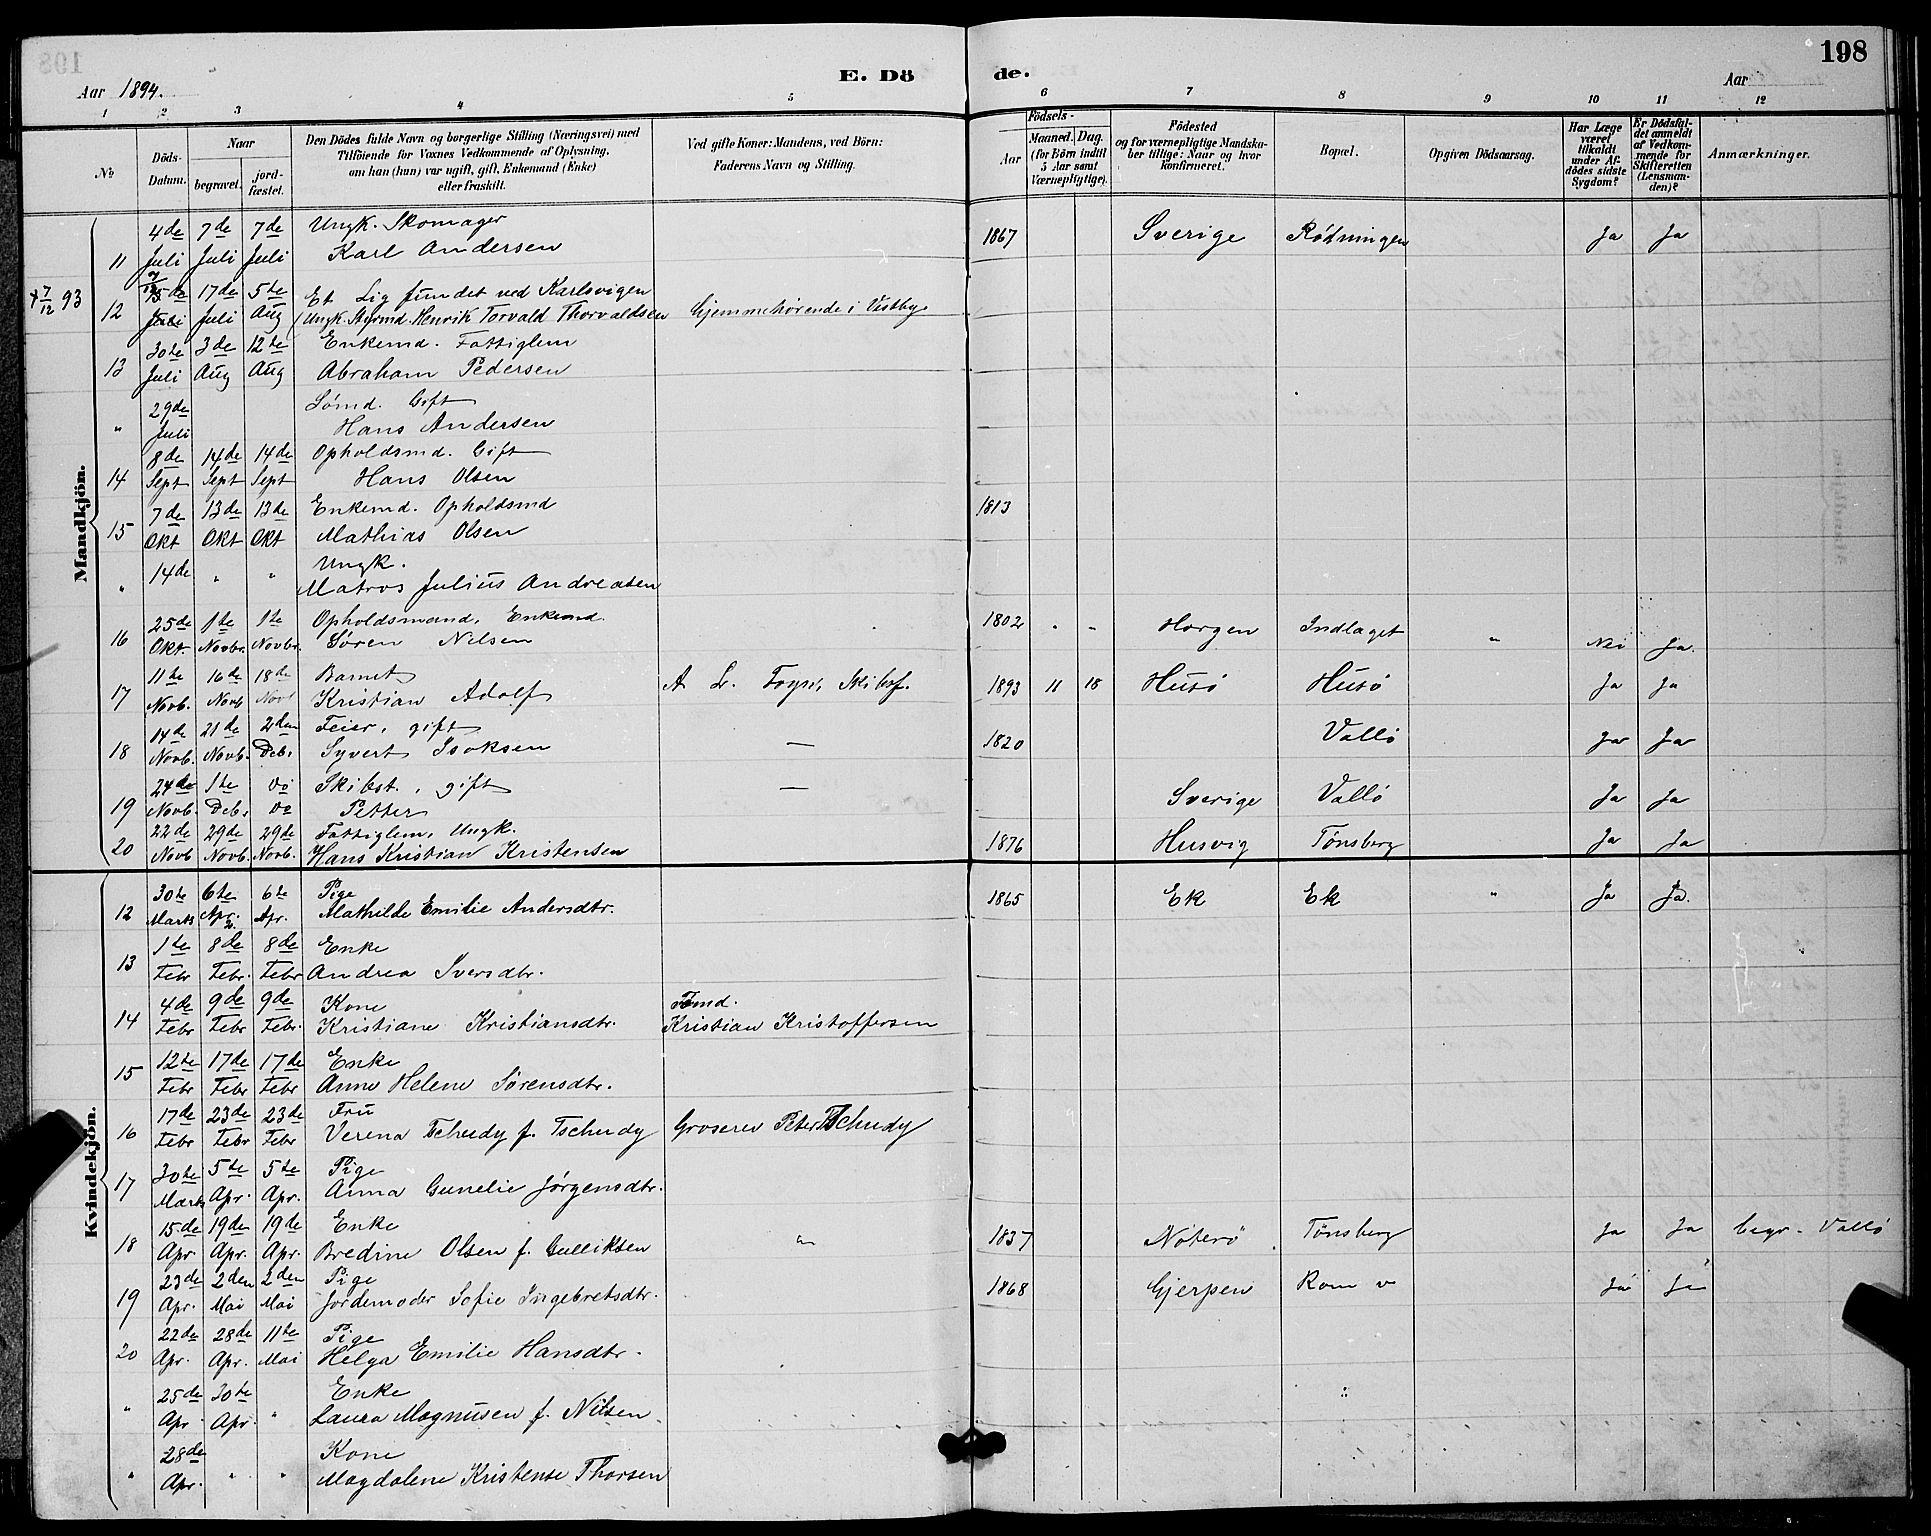 198
E. Dö de.
Aar 1894.
Aar
1 2 3 4 5 6 7 8 9 10 11 12
No
Döds-Datum.
Naar
begravet. jordfæstet.
Den Dödes fulde Navn og borgerlige Stilling (Næringsvei) med
Tilföiende for Voxnes Vedkommende af Oplysning,
om han (hun) var ugift, gift, Enkemand (Enke)
eller fraskilt.
Ved gifte Koner: Mandens, ved Börn:
Faderens Navn og Stilling.
Födsels-
Aar
Maaned. Dag.
(for Börn indtil
5 Aar samt
Værnepligtige).
Födested
og for værnepligtige Mandska-
ber tillige: Naar og hvor
konfirmeret.
Bopæl.
Opgiven Dödsaarsag.
Har Læge
været
tilkaldt
under Af-
dödes sidste
Sygdom?
Er Dödsfal-
det anmeldt
af Vedkom-
mende for
Skifteretten
(Lensman-
den)?
Anmærkninger.
Mandkjön.
4de 7de 7de Ungk. Skomager
11 Juli Juli Juli Karl Andersen 1867 Sverige Rødningen Ja Ja
† 7/12 93
17de 5te Et Lig fundet ved Karlsvigen
12 Juli Juli Aug (Ungk. Styrmd. Henrik Torvald Thorvaldsen Hjemmehørende i Vestby
30te 3de 12te Enkemd. Fattiglem
13 Juli Aug Aug Abraham Pedersen
29de Sømd. Gift
" Juli Hans Andersen
8de 14de 14de Opholdsmd. Gift
14 Sept Sept Sept Hans Olsen
7de 13de 13de Enkemd. Opholdsmd 1813
15 Okt Okt Okt Mathias Olsen
14de " " Ungk.
" Matros Julius Andreasen
25de 1te 1te Opholdsmand, Enkemd. 1802 " " Horgen Indlaget " Nei Ja.
16 Okt. Novbr. Novbr. Søren Nilsen
11te 16de 18de Barnet A. L. Foyn, Skibsf. 1893 11 18 Husø Husø Ja Ja
17 Novb. Novb Novb Kristian Adolf
14de 21de 2den Feier, gift
18 Novb. Novb. Deb. Syvert Isaksen — 1820 Vallø Ja Ja
24de 1te do Skibst., gift —
19 Novb. Deb. do Petter Sverige Vallø Ja Ja
22de 29de 29de Fattiglem, Ungk.
20 Novb Novb. Novb. Hans Kristian Kristensen 1876 Husvig Tønsberg Ja Ja
Kvindekjön.
30te 6te 6te Pige
12 Marts Apr. Apr. Mathilde Emilie Andersdtr. 1865 Ek Ek " Ja Ja.
1te 8de 8de Enke
13 Febr Febr. Febr Andrea Iversdtr.
4de 9de 9de Kone
14 Febr Febr Febr. Kristiane Kristiansdtr. Kristian Kristoffersen
12te 17de 17de Enke
15 Febr Febr Febr Anne Helene Sørensdtr.
17de 23de 23de Fru
16 Febr Febr Febr Verena Tschudy f. Tschudy Groserer Peter Tschudy
30te 5te 5te Pige
17 Marts Apr. Apr. Anna Gunelie Jørgensdtr.
15de 19de 19de Enke
18 Apr Apr. Apr. Bredine Olsen f. Gulliksen " 1837 Nøterø Tønsberg Ja Ja begr. Vallø
23de 2den 2den Pige
19 Apr. Mai Mai Jordemoder Sofie Ingebretsdtr. 1868 Gjerpen Ja Ja
22de 28de 11te Pige
20 Apr. Apr. Mai Helga Emilie Hansdtr.
25de 30te Enke
" Apr. Apr. " Laura Magnusen f. Nilsen
28de Kone
" Apr. " " Magdalene Kristense Thorsen